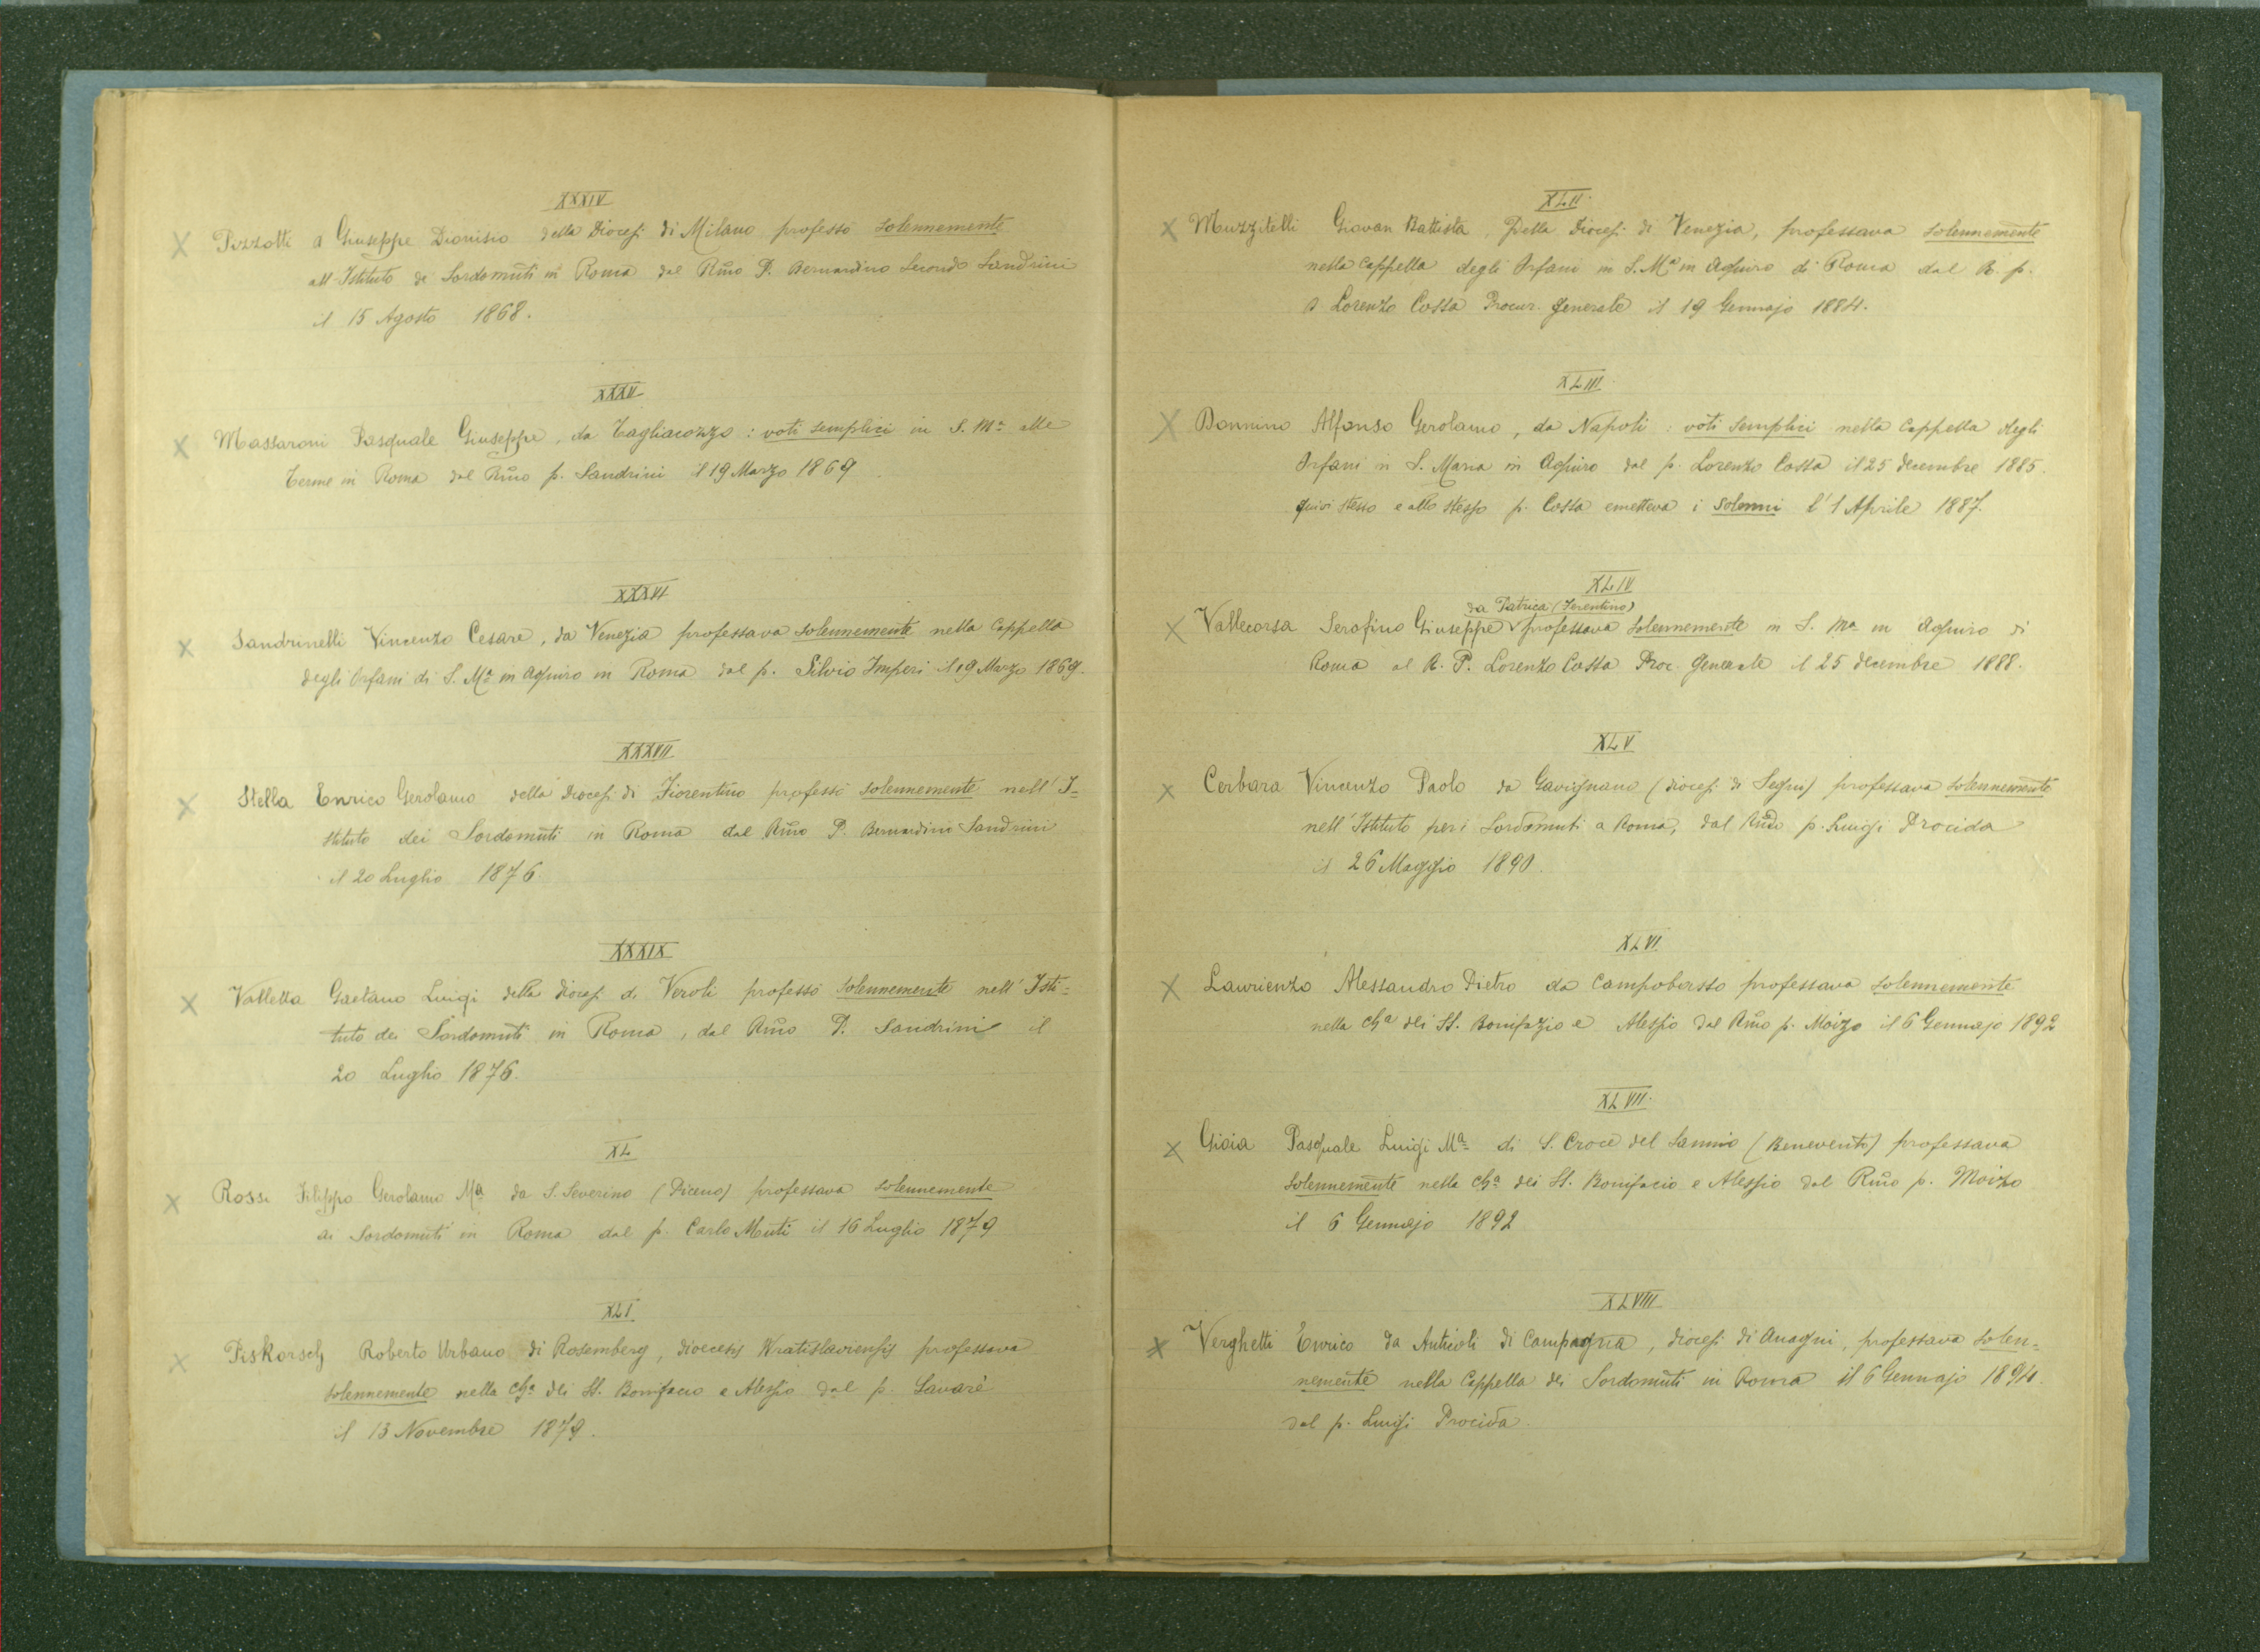 XXXIV
X Pizzotti d Giuseppe Dionisio della Diocesi di Milano professò solennemente
all'Istituto de Sordomuti in Roma dal Rm̃o P. Bernardino Secondo Sandrini
il 15 Agosto 1868.
XXXV
X Massaroni Pasquale Giuseppe, da Tagliacozzo: voti semplici in S. Ma alle
Terme in Roma dal Rm̃o p. Sandrini il 19 Marzo 1869
XXXVI
X Sandrinelli Vincenzo Cesare, da Venezia professava solennemente nella Cappella
degli Orfani di S. Ma in Aquiro in Roma dal p. Silvio Imperi il 19 Marzo 1869.
XXXVII
X Stella Enrico Gerolamo della Diocesi di Fiorentino professò solennemente nell'I=
stituto dei Sordomuti in Roma dal Rm̃o P. Bernardini Sandrini
il 20 Luglio 1876.
XXXIX
X Valletta Gaetano Luigi della diocesi di Veroli professò solennemente nell'Isti=
tuto dei Sordomuti in Roma, dal Rm̃o P. Sandrini il
20 Luglio 1876.
XL
X Rossi Filippo Gerolamo Ma da S. Severino (Piceno) professava solennemente
ai Sordomuti in Roma dal p. Carlo Muti il 16 Luglio 1879
XLI
X Piskorsch Roberto Urbano di Rosemberg, dioecesis Wratislaviensis professava
solennemente nella Cha dei SS. Bonifacio e Alessio dal p. Savarè
il 13 Novembre 1879.
XLII.
X Muzzitelli Giovan Battista, Della Diocesi di Venezia, professava solennemente
nella Cappella degli Orfani in S. Ma in Aquiro di Roma dal R. p.
D. Lorenzo Cossa Procur. Generale il 19 Gennajo 1884.
XLIII.
X Donnino Alfonso Gerolamo, da Napoli: voti semplici nella Cappella degli
Orfani in S. Maria in Aquiro dal p. Lorenzo Cossa il 25 decembre 1885.
quivi stesso e allo stesso p. Cossa emetteva i solenni l'1 Aprile 1887.
XLIV
da Patrica (Ferentino)
X Vallecorsa Serafino Giuseppe professava solennemente in S. Ma in Aquiro di
Roma al R. P. Lorenzo Cossa Proc. Generale il 25 decembre 1888.
XLV
X Cerbara Vincenzo Paolo da Gavignano (diocesi di Segni) professava solennemente
nell'Istituto per i Sordomuti a Roma, dal p. Luigi Procida
il 26 Maggio 1890.
XLVI
X Laurienzo Alessandro Pietro da Campobasso professava solennemente
nella Cha dei SS. Bonifazio e Alessio dal Rm̃o p. Moizo il 6 Gennajo 1892
XLVII.
X Gioia Pasquale Luigi Ma di S. Croce del Sannio (Benevento) professava
solennemente nella Cha dei SS. Bonifacio e Alessio dal Rm̃o p. Moizo
il 6 Gennajo 1892
XLVIII
X Verghetti Enrico da Anticoli di Campagna, diocesi di Anagni, professava solen=
nemente nella Cappella dei Sordomuti in Roma il 6 Gennajo 1894.
dal p. Luigi Procida.